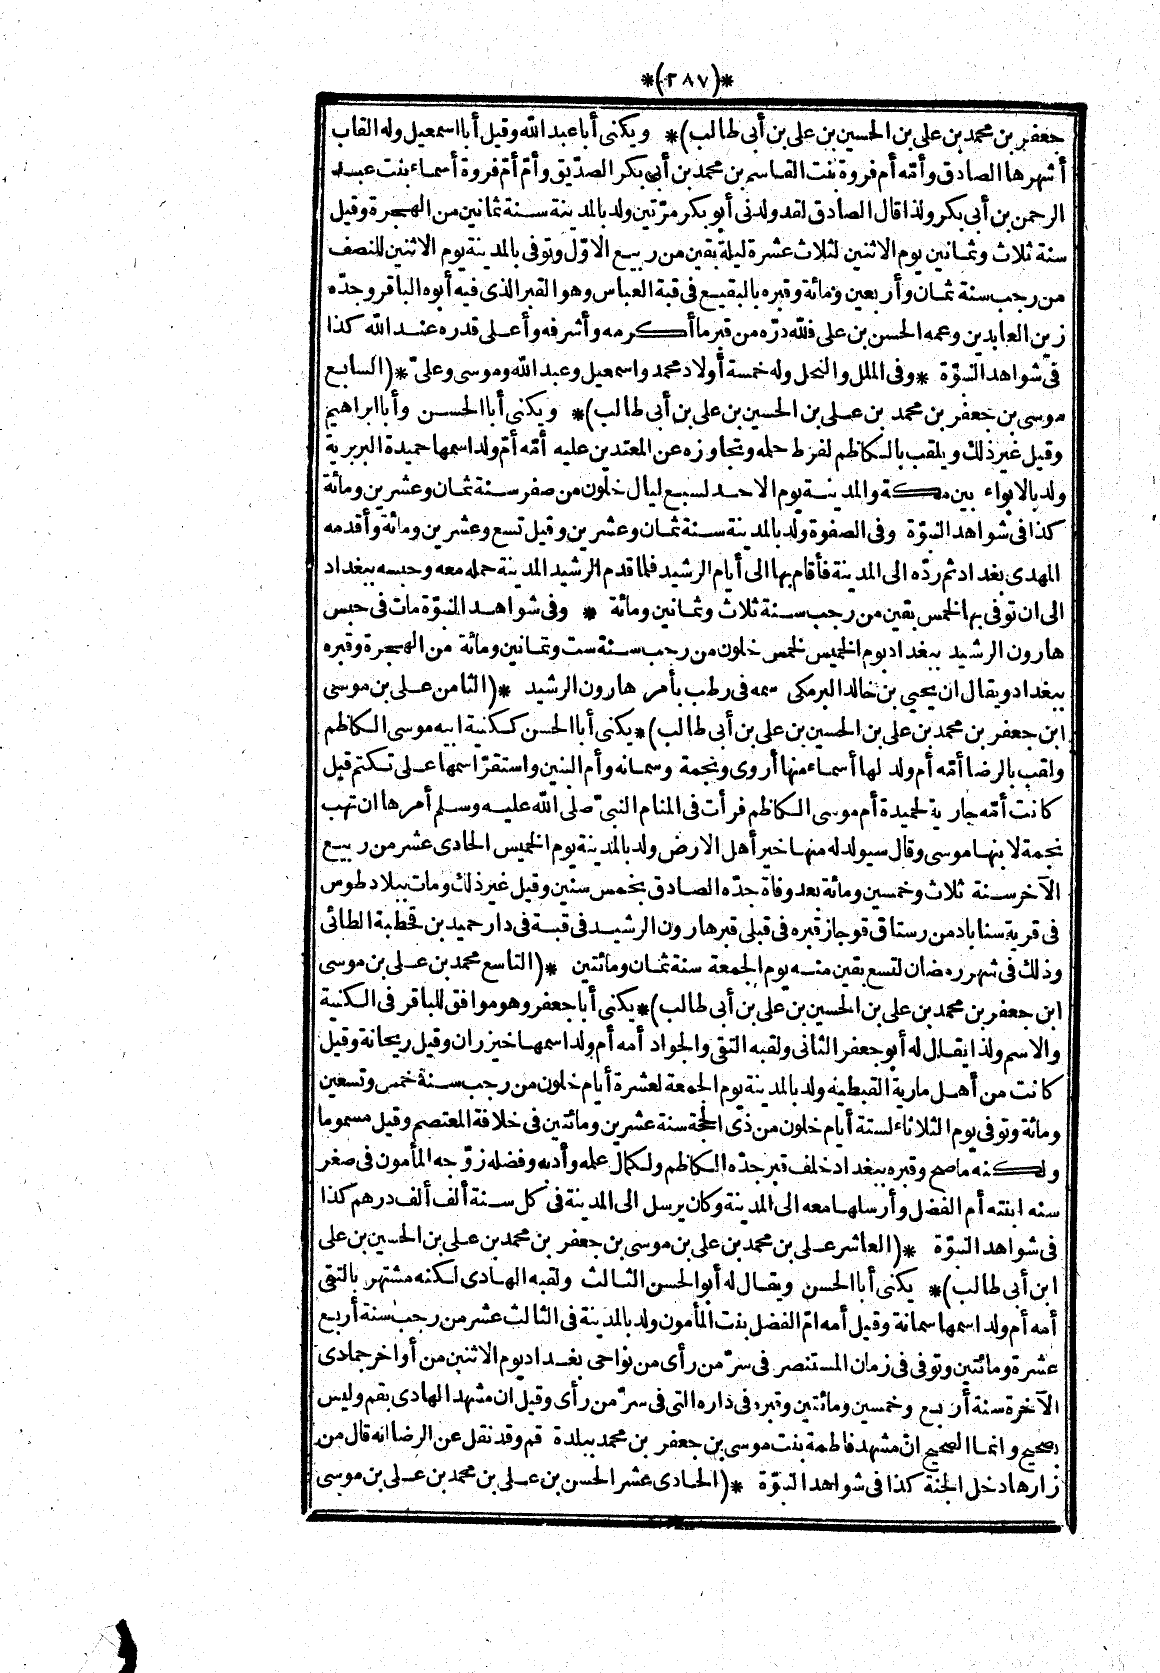 *(٢٨٧)*
جعفر بن محمد بن على بن الحسين بن على بن أبى طالب)* ويكنى أبا عبد الله وقيل أبا اسمعيل وله القاب
أشهرها الصادق وأمّه أم فروة بنت القاسم بن محمد بن أبى بكر الصدّيق وأمّ أمّ فروة أسماء بنت عبد
الرحمن بن أبى بكر ولذا قال الصادق لقد ولدنى أبو بكر مرّتين ولد بالمدينة سنة ثمانين من الهجرة وقيل
سنة ثلاث وثمانين يوم الاثنين لثلاث عشرة ليلة بقين من ربيع الاوّل وتوفى بالمدينة يوم الاثنين للنصف
من رجب سنة ثمان وأربعين ومائة وقبره بالبقيع فى قبة العباس وهو القبر الذى فيه أبوه الباقر وجدّه
زين العابدين وعمه الحسن بن على فلله درّه من قبر ما أكرمه وأشرفه وأعلى قدره عند الله كذا
فى شواهد النبوّة * وفى الملل والنحل وله خمسة أولاد محمد واسمعيل وعبد الله وموسى وعلىّ *(السابع
موسى بن جعفر بن محمد بن على بن الحسين بن على بن أبى طالب)* ويكنى أبا الحسن وأبا ابراهيم
وقيل غير ذلك ويلقب بالكاظم لفرط حلمه وتجاوزه عن المعتدين عليه أمّه أمّ ولد اسمها حميدة البربرية
ولد بالابواء بين مكة والمدينة يوم الاحد لسبع ليال خلون من صفر سنة ثمان وعشرين ومائة
كذا فى شواهد النبوّة وفى الصفوة ولد بالمدينة سنة ثمان وعشرين وقيل تسع وعشرين ومائة وأقدمه
المهدى بغداد ثم ردّه الى المدينة فأقام بها الى أيام الرشيد فلما قدم الرشيد المدينة حمله معه وحبسه ببغداد
الى ان توفى بها لخمس بقين من رجب سنة ثلاث وثمانين ومائة * وفى شواهد النبوّة مات فى حبس
هارون الرشيد ببغداد يوم الخميس لخمس خلون من رجب سنة ست وثمانين ومائة من الهجرة وقبره
ببغداد ويقال ان يحيى بن خالد البرمكى سمه فى رطب بأمر هارون الرشيد *(الثامن على بن موسى
ابن جعفر بن محمد بن على بن الحسين بن على بن أبى طالب)* يكنى أبا الحسن ككنية ابيه موسى الكاظم
ولقب بالرضا أمّه أم ولد لها أسماء منها أروى ونجمة وسمانه وأم البنين واستقرّ اسمها على تكتم قيل
كانت أمّه جارية لحميدة أم موسى الكاظم فرأت فى المنام النبىّ صلى الله عليه وسلم أمرها ان تهب
نجمة لابنها موسى وقال سيولد له منها خير أهل الارض ولد بالمدينة يوم الخميس الحادى عشر من ربيع
الآخر سنة ثلاث وخمسين ومائة بعد وفاة جدّه الصادق بخمس سنين وقيل غير ذلك ومات ببلاد طوس
فى قرية سناباد من رستاق قوجاز قبره فى قبلى قبر هارون الرشيد فى قبة فى دار حميد بن قحطبة الطائى
وذلك فى شهر رمضان لتسع بقين منه يوم الجمعة سنة ثمان ومائتين *(التاسع محمد بن على بن موسى
ابن جعفر بن محمد بن على بن الحسين بن على بن أبى طالب)* يكنى أبا جعفر وهو موافق للباقر فى الكنية
والاسم ولذا يقال له أبو جعفر الثانى ولقبه التقى والجواد أمه أم ولد اسمها خيزران وقيل ريحانة وقيل
كانت من أهل مارية القبطية ولد بالمدينة يوم الجمعة لعشرة أيام خلون من رجب سنة خمس وتسعين
ومائة وتوفى يوم الثلاثاء لستة أيام خلون من ذى الحجة سنة عشرين ومائتين فى خلافة المعتصم وقيل مسموما
ولكنه ما صح وقبره ببغداد خلف قبر جدّه الكاظم ولكمال علمه وأدبه وفضله زوّجه المأمون فى صغر
سنه ابنته أم الفضل وأرسلها معه الى المدينة وكان يرسل الى المدينة فى كل سنة ألف ألف درهم كذا
فى شواهد النبوّة *(العاشر على بن محمد بن على بن موسى بن جعفر بن محمد بن على بن الحسين بن على
ابن أبى طالب)* يكنى أبا الحسن ويقال له أبو الحسن الثالث ولقبه الهادى لكنه مشتهر بالتقى
أمه أم ولد اسمها سمانة وقيل أمه امّ الفضل بنت المأمون ولد بالمدينة فى الثالث عشر من رجب سنة أربع
عشرة ومائتين وتوفى فى زمان المستنصر فى سرّ من رأى من نواحى بغداد يوم الاثنين من أواخر جمادى
الآخرة سنة أربع وخمسين ومائتين وقبره فى داره التى فى سرّ من رأى وقيل ان مشهد الهادى بقم وليس
بصحيح وانما الصحيح انّ مشهد فاطمة بنت موسى بن جعفر بن محمد ببلدة قم وقد نقل عن الرضا انه قال من
زارها دخل الجنة كذا فى شواهد النبوّة *(الحادى عشر الحسن بن على بن محمد بن على بن موسى